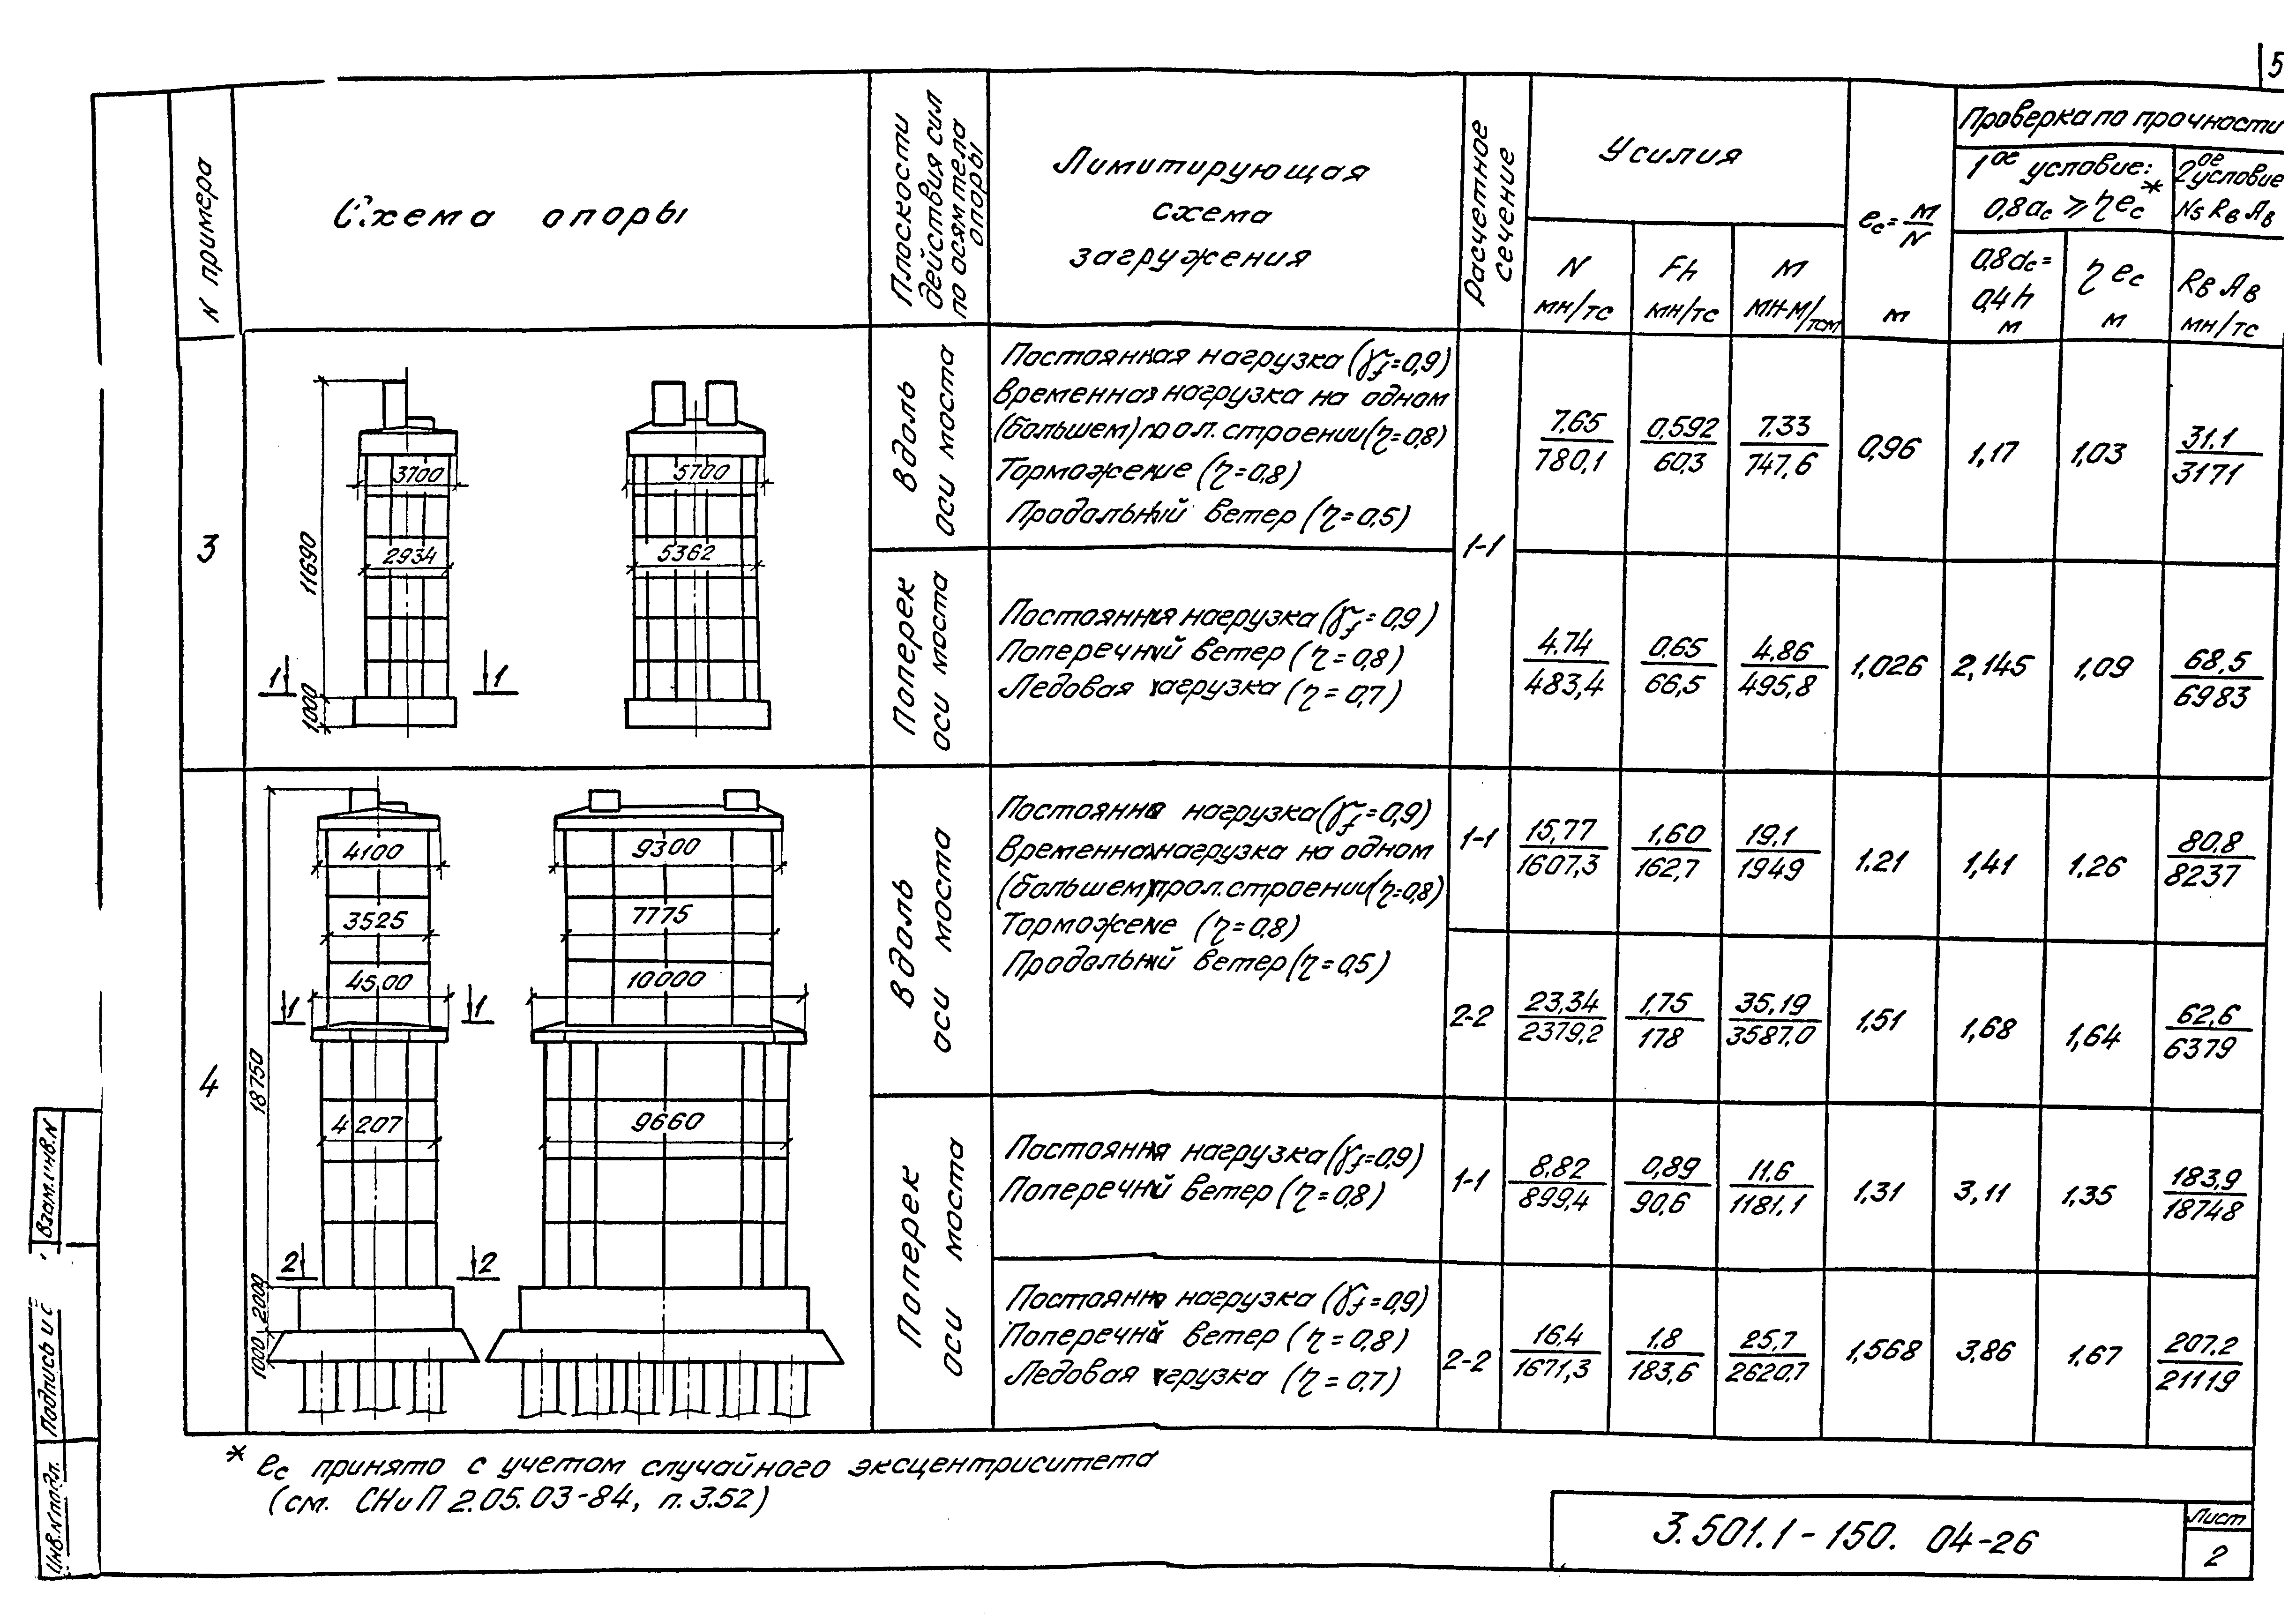 5
N примера
Схема опоры
Плоскости
действия сил
по осям тела
опоры
Лимитирующая
схема
загружения
Расчетное
сечение
Усилия
N
мн/тс
Fh
мн/тс
М
мн·м/тсм
ec = М/N
м
Проверка по прочности
1ое условие:
0,8ac ⩾ ηec*
0,8ac =
0,4h
м
ηec
м
2ое
условие
N≤RвAв
RвAв
мн/тс
3
11690
1000
3700
2934
1 1
5700
5362
Вдоль
оси моста
Постоянная нагрузка (γf=0,9)
Временная нагрузка на одном
(большем) прол. строении (η=0,8)
Торможение (η=0,8)
Продольный ветер (η=0,5)
1-1
7.65/780,1 0,592/60,3 7.33/747,6 0,96 1,17 1,03 31.1/3171
Поперек
оси моста
Постоянная нагрузка (γf=0,9)
Поперечный ветер (η=0,8)
Ледовая нагрузка (η=0,7)
4.74/483,4 0.65/66,5 4.86/495,8 1,026 2,145 1,09 68,5/6983
4
18750
2000
1000
4100
3525
4500
1 1
4207
2 2
9300
7775
10000
9660
Вдоль
оси моста
Постоянная нагрузка (γf=0,9)
Временная нагрузка на одном
(большем) прол. строении (η=0,8)
Торможение (η=0,8)
Продольный ветер (η=0,5)
1-1 15,77/1607,3 1,60/162,7 19,1/1949 1.21 1,41 1.26 80,8/8237
2-2 23,34/2379,2 1,75/178 35,19/3587,0 1,51 1,68 1,64 62,6/6379
Поперек
оси моста
Постоянная нагрузка (γf=0,9)
Поперечный ветер (η=0,8)
1-1 8.82/899,4 0,89/90,6 11,6/1181,1 1,31 3,11 1,35 183,9/18748
Постоянная нагрузка (γf=0,9)
Поперечный ветер (η=0,8)
Ледовая нагрузка (η=0,7)
2-2 16.4/1671,3 1.8/183,6 25,7/2620,7 1,568 3,86 1,67 207,2/21119
* ec принято с учетом случайного эксцентриситета
(см. СНиП 2.05.03-84, п.3.52)
3.501.1-150. 04-26
Лист
2
Взам.инв.N
Подпись и
Инв.Nподл.